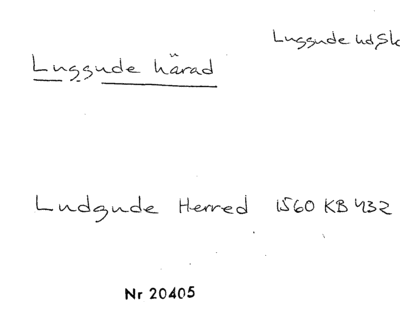 Luggude hd, Sk
Luggude härad
Ludgude Herred 1560 KB 432
Nr 20405